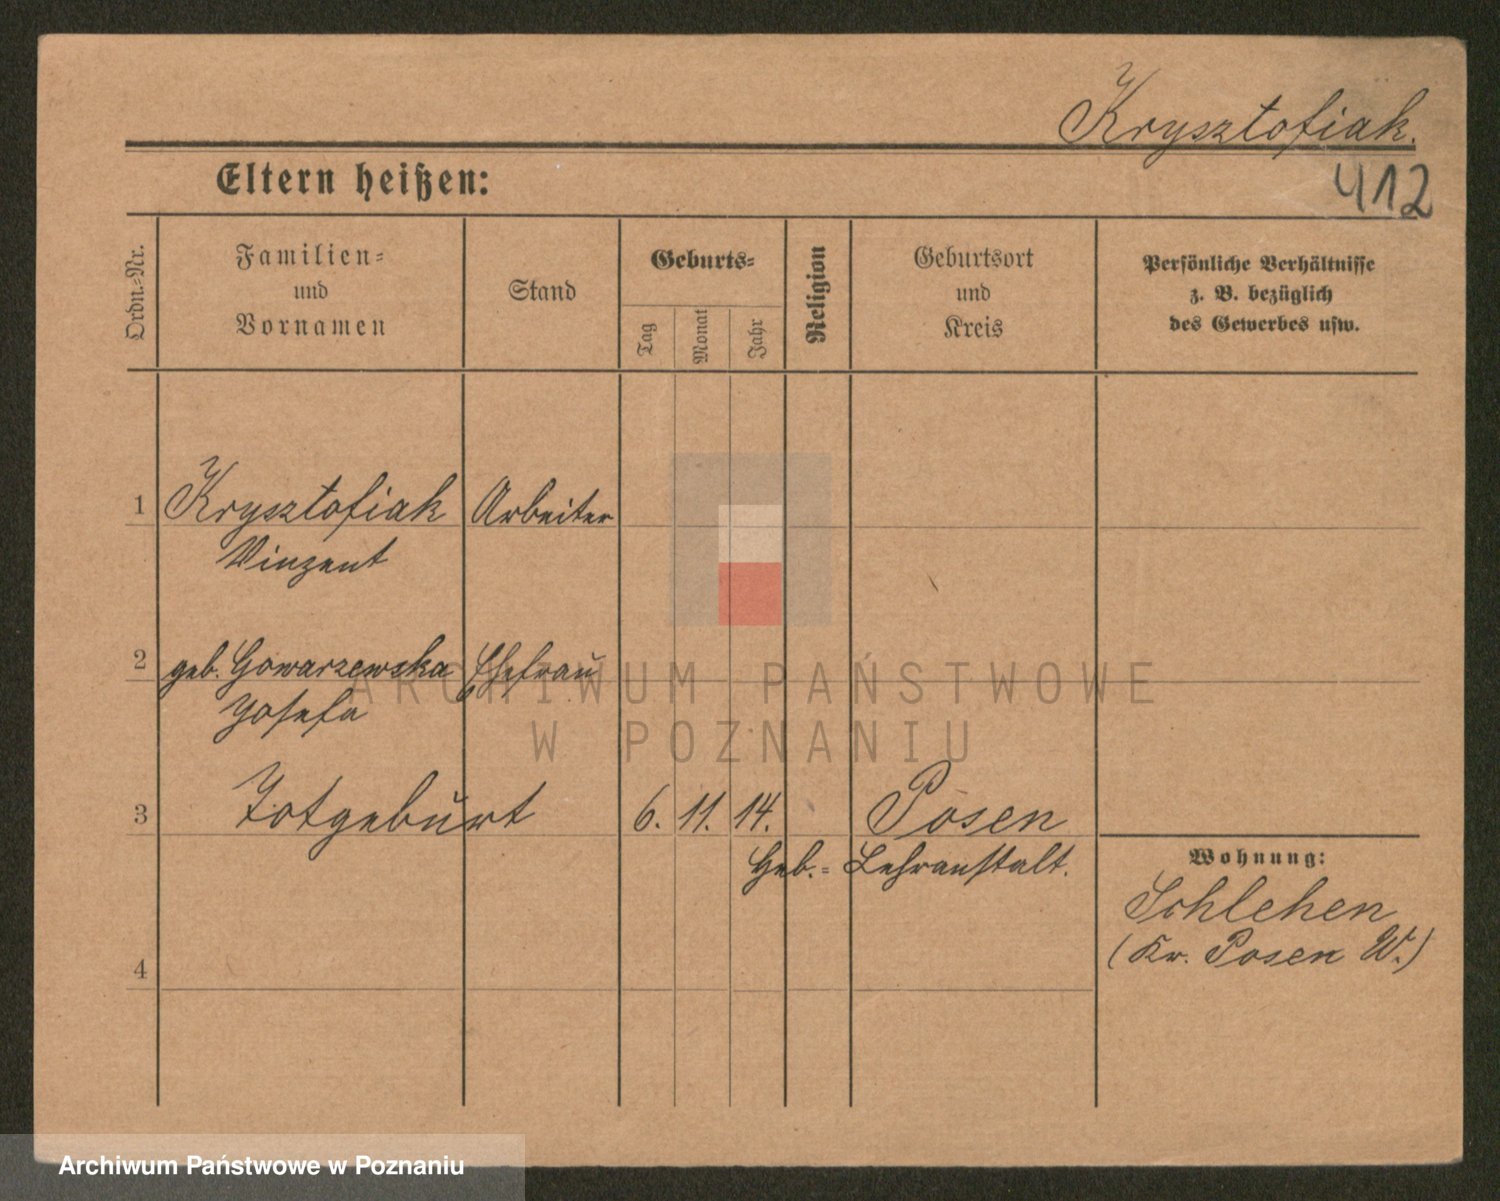 Krysztofiak.
412
Eltern heißen:
Ordn.-Nr.
Familien-
und
Vornamen
Stand
Geburts-
Tag
Monat
Jahr
Religion
Geburtsort
und
Kreis
Persönliche Verhältnisse
z. B. bezüglich
des Gewerbes usw.
1 Krysztofiak Arbeiter
Vinzent
2 geb. Gowarzewska Ehefrau
Josefa
ARCHIWUM PAŃSTWOWE
W POZNANIU
3 Totgeburt 6. 11. 14. Posen
Heb.= Lehranstalt.
Wohnung:
Schlehen
(Kr. Posen W.)
4
Archiwum Państwowe w Poznaniu